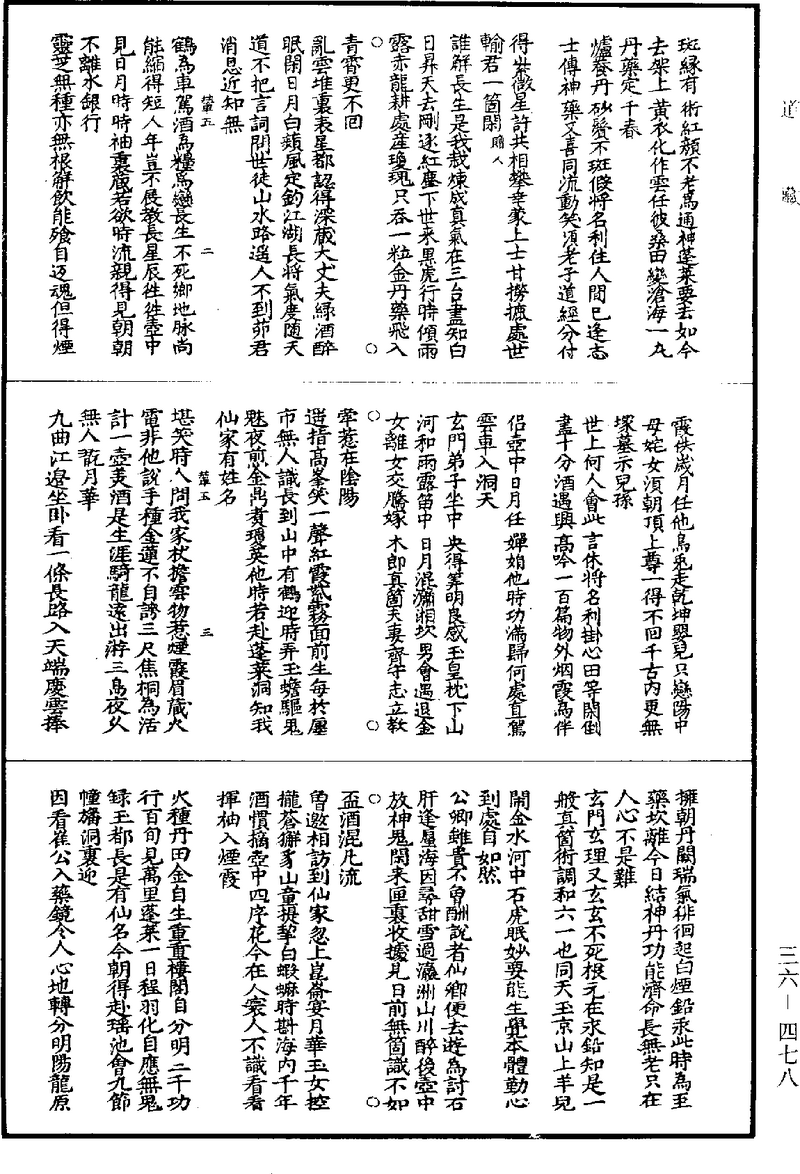 道藏
斑緣有術紅顏不老爲通神蓬萊要去如今
去架上黃衣化作雲任彼桑田變滄海一丸
丹藥定千春
爐養丹砂鬢不斑假將名利住人間巳逢志
士傳神藥又喜同流動笑須老子道經分付
得少微星許共相攀幸蒙上士甘撈攎處世
輸君一箇閑贈人
誰解長生是我栽煉成真氣在三台盡知白
日昇天去剛逐紅塵下世來黑虎行時傾雨
露赤龍耕處産瓊瑰只吞一粒金丹藥飛入
青霄更不回
亂雲堆裏表星都認得深藏大丈夫綠酒醉
眠閑日月白蘋風定釣江湖長將氣度隨天
道不把言詞問世徒山水路遥人不到茆君
消息近知無
二
鶴爲車駕酒爲糧爲戀長生不死鄉地脉尚
能縮得短人年豈不展教長星辰徃徃壺中
見日月時時袖裏藏若欲時流親得見朝朝
不離水銀行
靈芝無種亦無根解飲能飱自返魂但得煙
霞供歲月任他烏兎走乾坤嬰兒只戀陽中
母姹女須朝頂上尊一得不回千古内更無
塚墓示兒孫
世上何人會此言休將名利掛心田等閑倒
盡十分酒遇興高吟一百篇物外烟霞爲伴
侣壺中日月任嬋娟他時功滿歸何處直駕
雲車入洞天
玄門弟子坐中央得筭明良感玉皇枕下山
河和雨露笛中日月混瀟湘坎男會遇退金
女離女交騰嫁木郎真箇夫妻齊守志立教
牽惹在陰陽
遥指高峯笑一聲紅霞紫霧面前生每於廛
市無人識長到山中有鶴迎時弄玉蟾驅鬼
魅夜煎金鼎煑瓊英他時若赴蓬萊洞知我
仙家有姓名
三
堪笑時人問我家杖擔雲物惹煙霞眉藏火
電非他說手種金蓮不自誇三尺焦桐爲活
計一壺美酒是生涯騎龍遠出游三島夜久
無人翫月華
九曲江邊坐卧看一條長路入天端慶雲捧
擁朝丹闕瑞氣徘徊起白煙鉛汞此時爲至
藥坎離今日結神丹功能濟命長無老只在
人心不是難
玄門玄理又玄玄不死根元在汞鉛知是一
般真箇術調和六一也同天玉京山上羊兒
閙金水河中石虎眠妙要能生覺本體勤心
到處自如然
公卿雖貴不曾酬說著仙卿便去遊爲討石
肝逢蜃海因尋甜雪過瀛洲山川醉後壺中
放神鬼閑来匣裏收據見日前無箇識不如
盃酒混凡流
曽邀相訪到仙家忽上崑崙宴月華玉女控
攏蒼獬豸山童提挈白蝦蟆時斟海内千年
酒慣摘壺中四序花今在人寰人不識看看
揮袖入煙霞
火種丹田金自生重重樓閣自分明二千功
行百旬見萬里蓬萊一日程羽化自應無鬼
録玉都長是有仙名今朝得赴瑤池會九節
幢旛洞裏迎
因看崔公入藥鏡令人心地轉分明陽龍原
三六－四七八